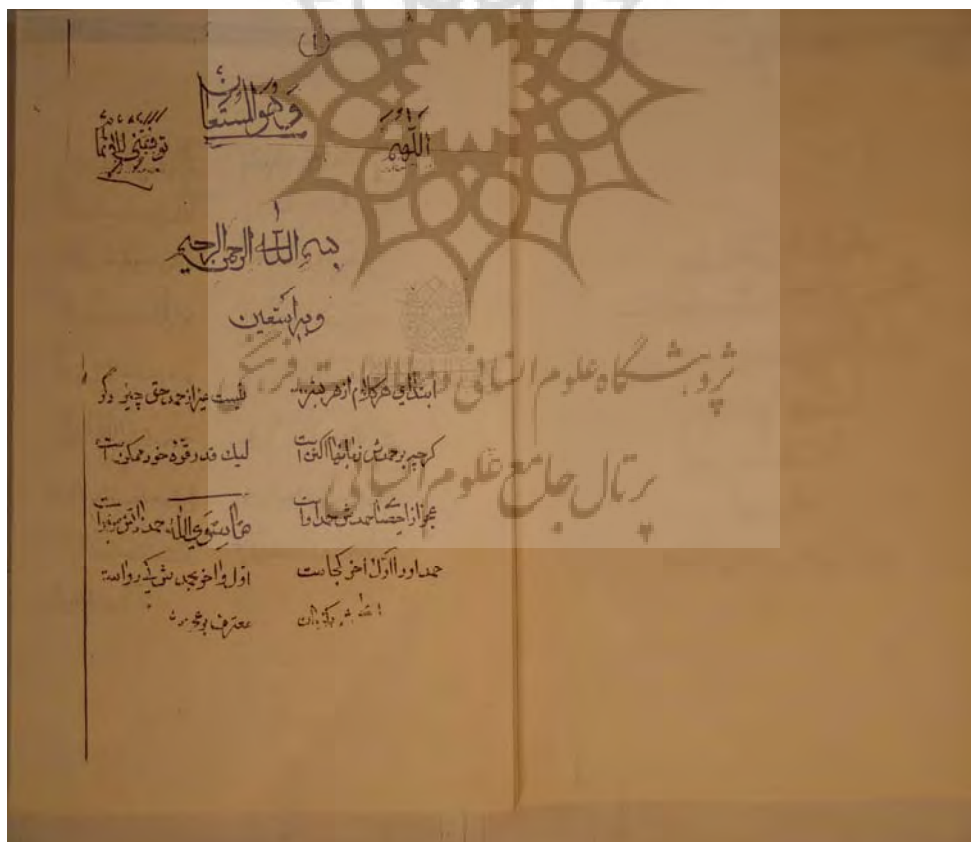 (۱)
وهو المستعان
اللّهم
توفیقنی للاتما
بسم الله الرحمن الرحیم
وبه استعین
ابتدای هر کلام از هر هنر نیست غیر از حمد حق چیز دگر
گرچه بر حمدش زبانها الکن است لیک قدر قوه خود ممکن است
عجز از احصا حمدش حمد اوست ماسوی الله حمد
حمد اورا اوّل اخر کجاست اوّل واخر بحمدش کی رواست
معترف
پژوهشگاه علوم انسانی و مطالعات فرهنگی
پرتال جامع علوم انسانی